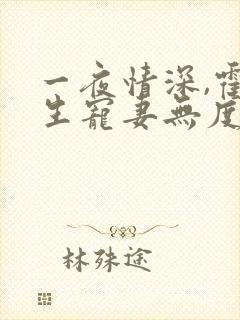 一夜情深,霍
生寵妻無度
林殊途